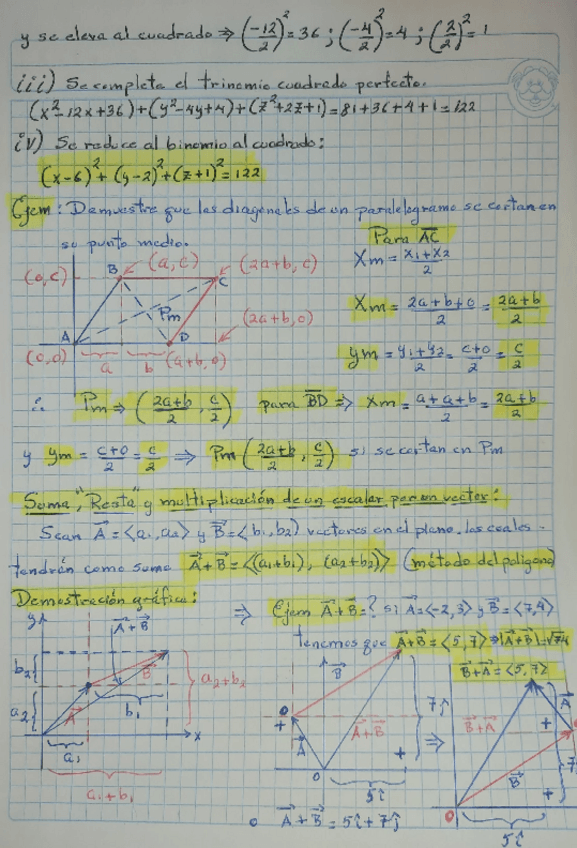 y se eleva al cuadrado ⇒ (-12/2)² = 36 ; (-4/2)² = 4 ; (2/2)² = 1
iii) Se completa el trinomio cuadrado perfecto.
(x²-12x+36)+(y²-4y+4)+(z²+2z+1)=81+36+4+1=122
iv) Se reduce al binomio al cuadrado:
(x-6)²+(y-2)²+(z+1)²=122
Ejem: Demuestre que las diagonales de un paralelogramo se cortan en
su punto medio.
Para AC
B (a,c) (2a+b,c)
(0,c) C
Xm = (x₁+x₂)/2
Pm
Xm = (2a+b+0)/2 = (2a+b)/2
(2a+b,0)
A D
(0,0) a b (a+b,0)
ym = (y₁+y₂)/2 = (c+0)/2 = c/2
∴ Pm ⇒ ((2a+b)/2, c/2) para BD ⇒ Xm = (a+a+b)/2 = (2a+b)/2
y ym = (c+0)/2 = c/2 ⇒ Pm ((2a+b)/2, c/2) si se cortan en Pm
Suma, "Resta" y multiplicación de un escalar por un vector:
Sean A⃗ = <a₁,a₂> y B⃗ = <b₁,b₂> vectores en el plano, los cuales
tendrán como suma A⃗+B⃗ = <(a₁+b₁), (a₂+b₂)> (método del polígono)
Demostración gráfica:
⇒ Ejem A⃗+B⃗=? si A⃗=<-2,3> y B⃗=<7,4>
tenemos que A⃗+B⃗=<5,7> ⇒ |A⃗+B⃗|=√74
B⃗+A⃗=<5,7>
y A⃗+B⃗
b₂ B⃗ a₂+b₂
a₂ A⃗ b₁ x
a₁
a₁+b₁
B⃗ 7ĵ
A⃗ A⃗+B⃗ + ⇒
0 5î
A⃗+B⃗ = 5î+7ĵ
A⃗
B⃗+A⃗ +
B⃗ 7
0 5î